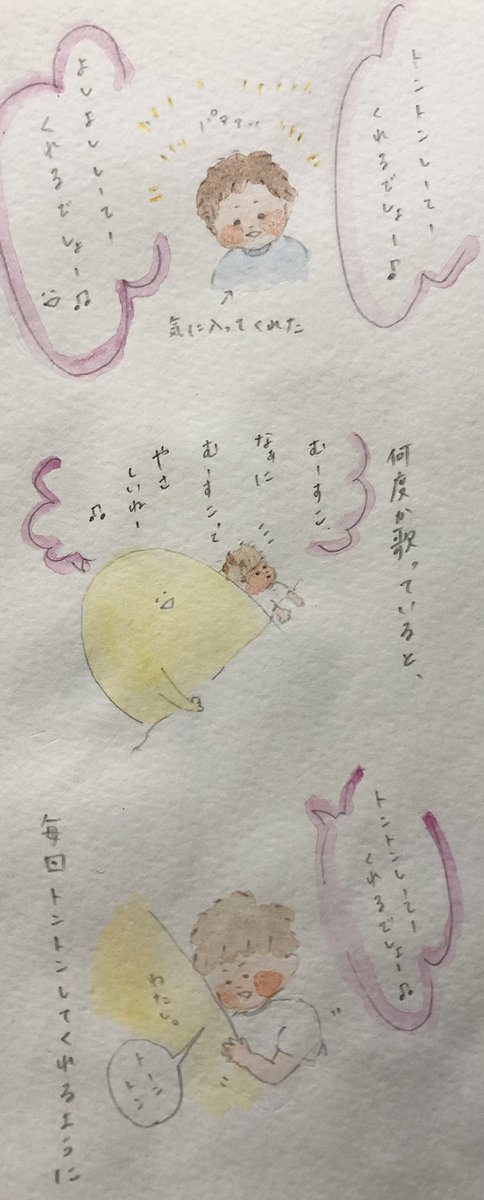 トントンしーてー
くれるでしょー♪
パタタッ
よしよししーてー
くれるでしょー♫
↑
気に入ってくれた
何度か歌っていると、
むーすこ、
なぁに
むーすこって
やさ
しいねー
♫
トントンしーてー
くれるでしょー♫
わたし。
トーン
トン
毎回トントンしてくれるように